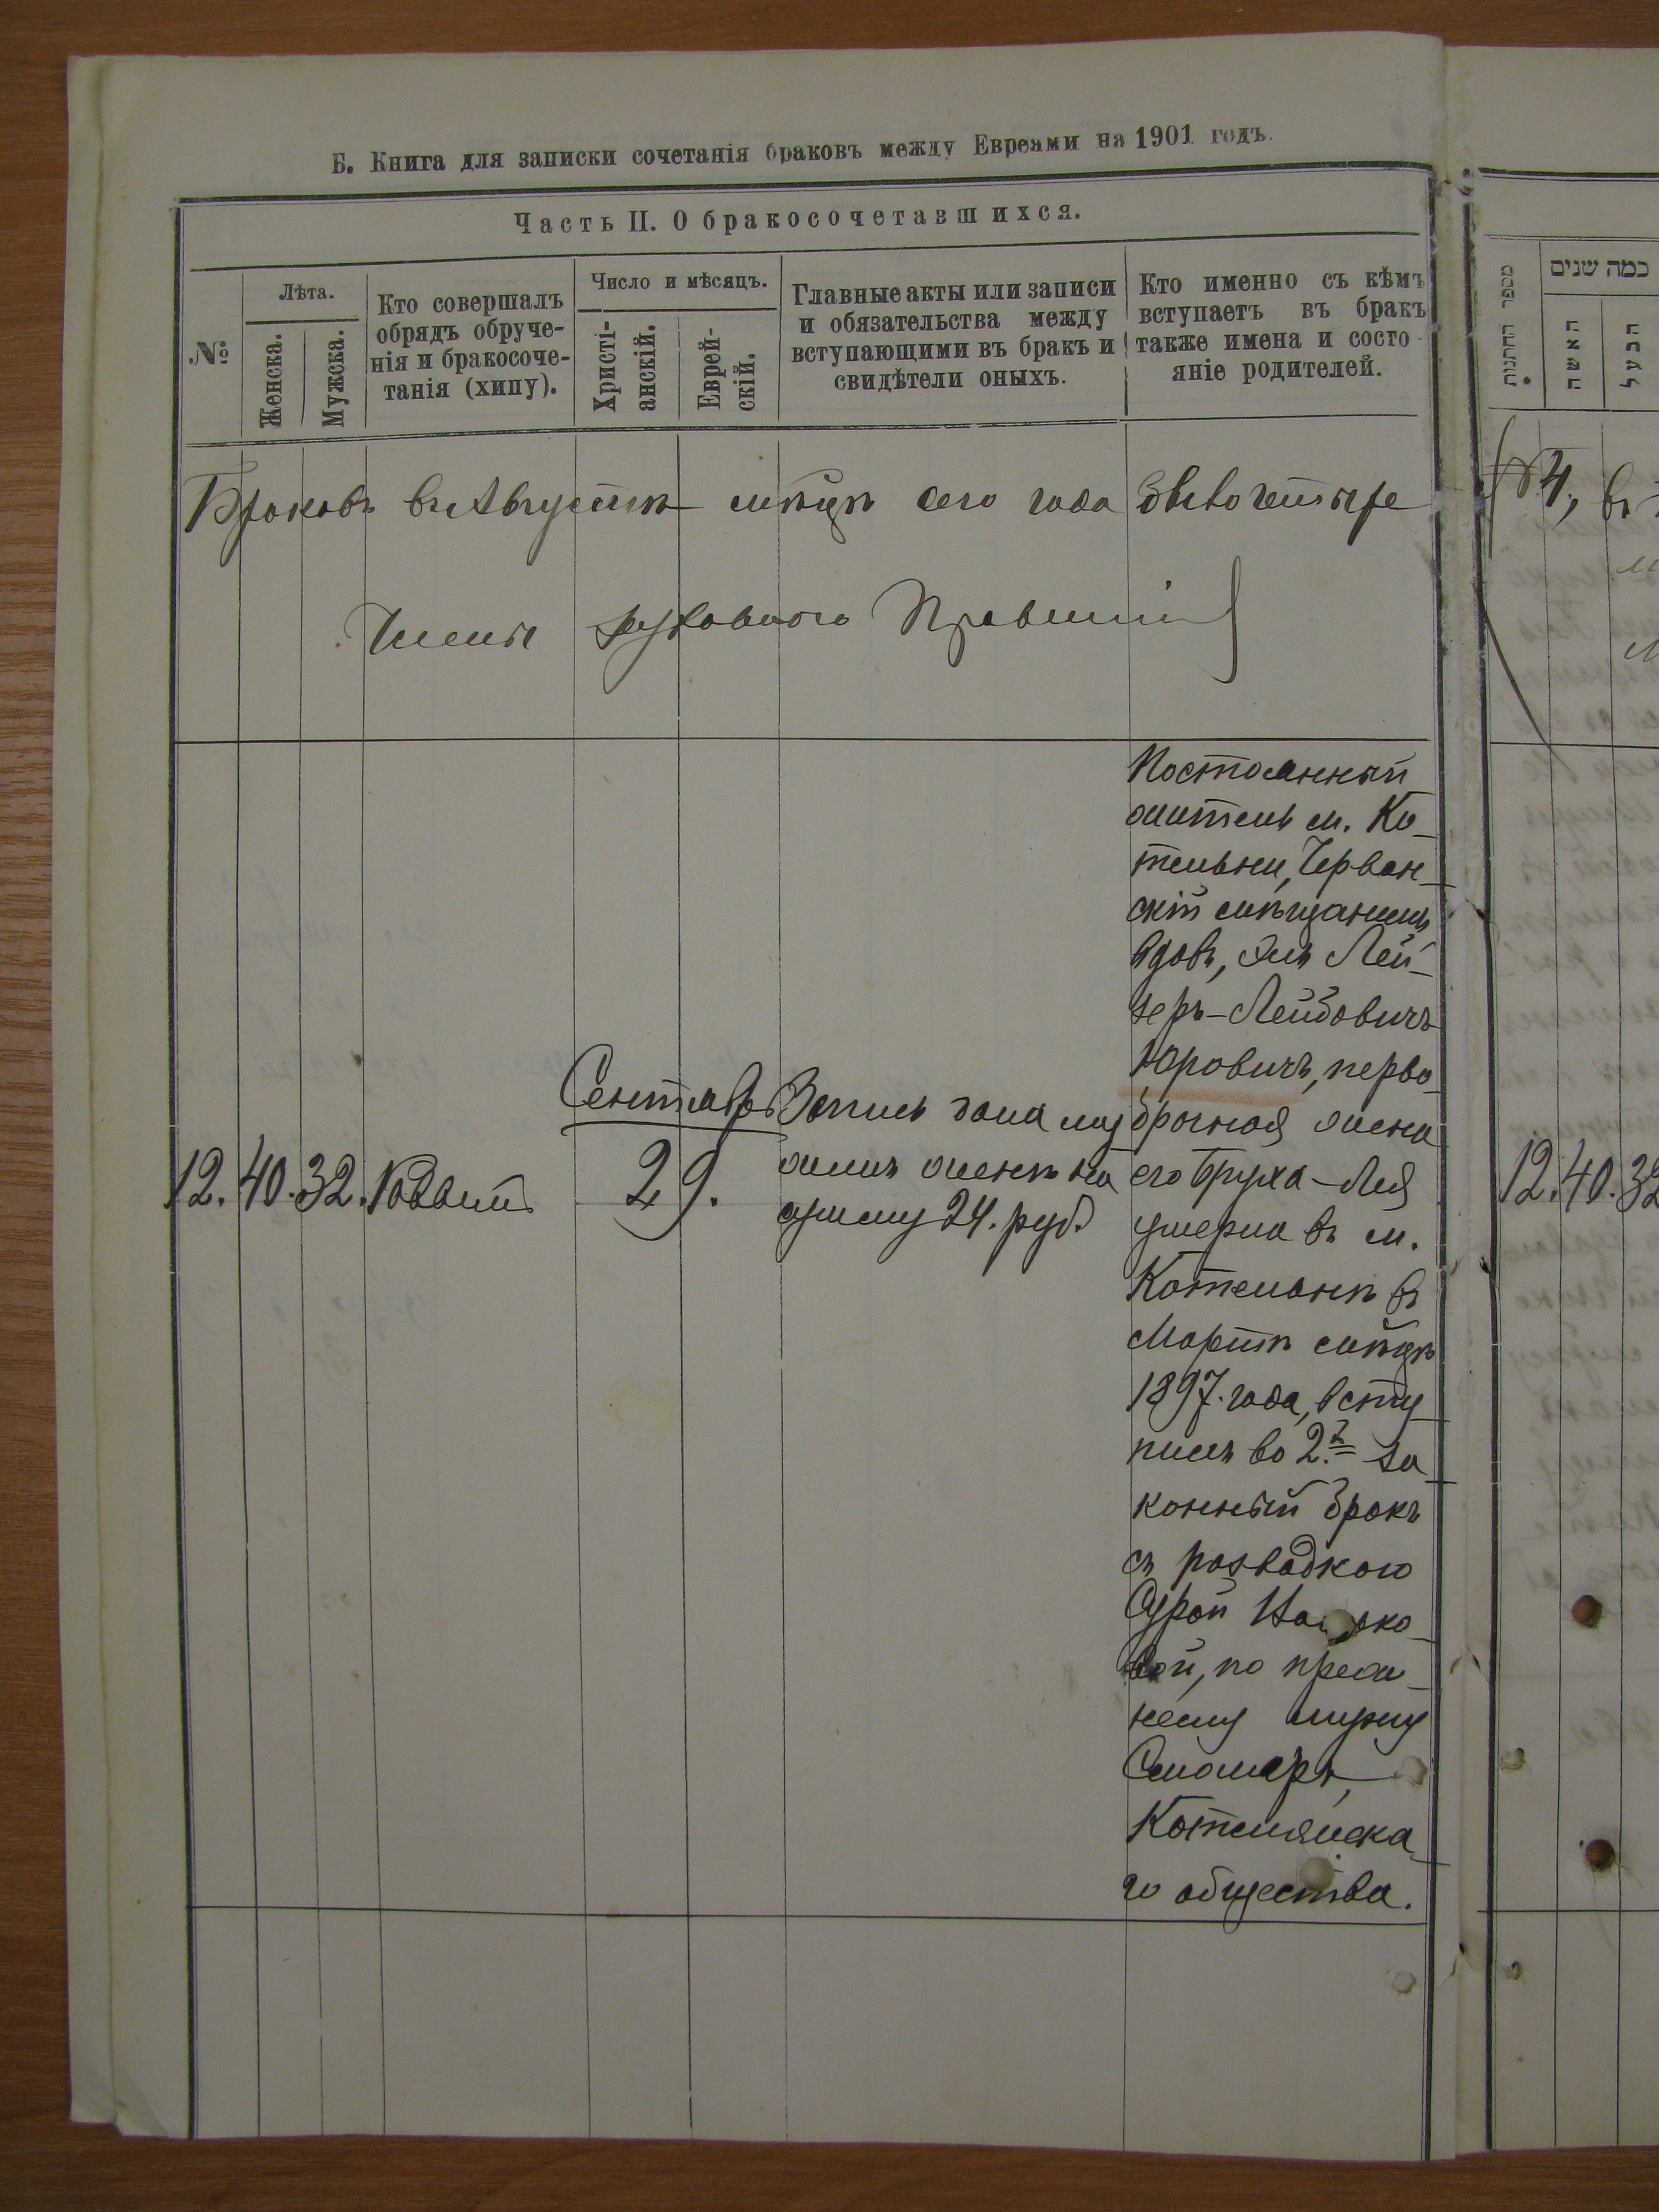 Б. Книга для записки сочетанія браковъ между Евреями на 1901 годъ.
Часть II. О бракосочетавшихся.
№
Лѣта.
Женска.
Мужска.
Кто совершалъ
обрядъ обруче-
нія и бракосоче-
танія (хипу).
Число и мѣсяцъ.
Христі-
анскій.
Еврей-
скій.
Главные акты или записи
и обязательства между
вступающими въ бракъ и
свидѣтели оныхъ.
Кто именно съ кѣмъ
вступаетъ въ бракъ
также имена и состо-
яніе родителей.
Браковъ въ Августѣ мѣсяцѣ сего года было четыре
Члены духовного Правленія
12. 40. 32. Раввинъ
Сентябрь
29.
Запись дана му
жемъ женѣ на
сумму 24. руб.
Постоянный
житель м. Ко-
тельни, Черван-
скій мѣщанинъ
вдовъ, Эль Лей-
зеръ-Лейбовичъ
Юровичъ, перво
брачная жена
его Бруха-Лея
умерла въ м.
Котельнѣ въ
Мартѣ мѣсяцѣ
1897. года, всту-
пилъ во 2.й за-
конный бракъ
съ разводкою
Сурой
вой, по преж-
нему мужу
Смоляръ,
Котелянска-
го общества.
מספר החתנות
כמה שנים
האשה
הבעל
4, въ
12. 40. 32